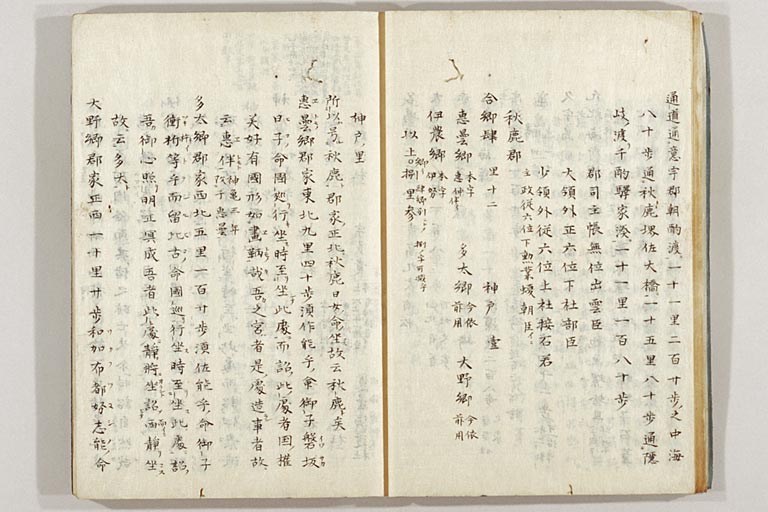 通道通意宇郡朝酌渡一十一里二百廿歩之中海
八十歩通秋鹿堺佐大橋一十五里八十歩通隠
岐渡千酌驛家湊一十一里一百八十歩
郡司主帳無位出雲臣
大領外正六位下社部臣
少領外従六位上社接石君
主政従六位下勲業蝮朝臣
秋鹿郡
合郷肆 里十二 神戸壹
恵曇郷 本字恵伴 多太郷 今依前用 大野郷 今依前用
伊農郷 本字伊努
以上 捌 里参
神戸里
所以号秋鹿郡家正北秋鹿日女命坐故云秋鹿矣
恵曇郷郡家東北九里四十歩須作能乎命御子磐坂
日子命國巡行坐時至坐此處而詔此處者国権
美好有國形如畫鞆哉吾之宮者是處造事者故
云恵伴 神亀三年改字恵曇
多太郷郡家西北五里一百廿歩須佐能乎命御子
衝桙等乎而留比古命國巡行坐時至坐此處詔
吾御心照明正真成吾者此處静将坐詔而静坐
故云多太
大野郷郡家正西一十里廿歩和加布都努志能命